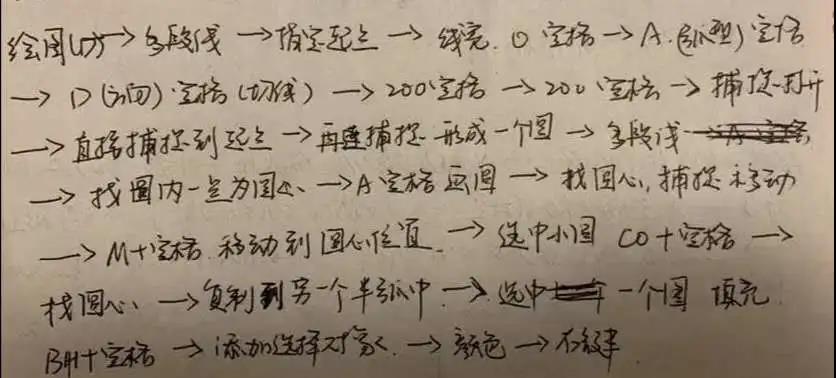 绘图(D)→多段线→指定起点→线宽.0空格→A.(弧型)空格
→D(方向)空格(切线)→200空格→200空格→捕捉打开
→直接捕捉到起点→再连捕捉形成一个圆→多段线
→找圆内一点为圆心→A空格画圆→找圆心,捕捉移动
→M+空格 移动到圆心位置.→选中小圆 CO+空格→
找圆心.→复制到另一个半弧中→选中一个圆 填充
BH+空格→添加选择对象.→颜色→